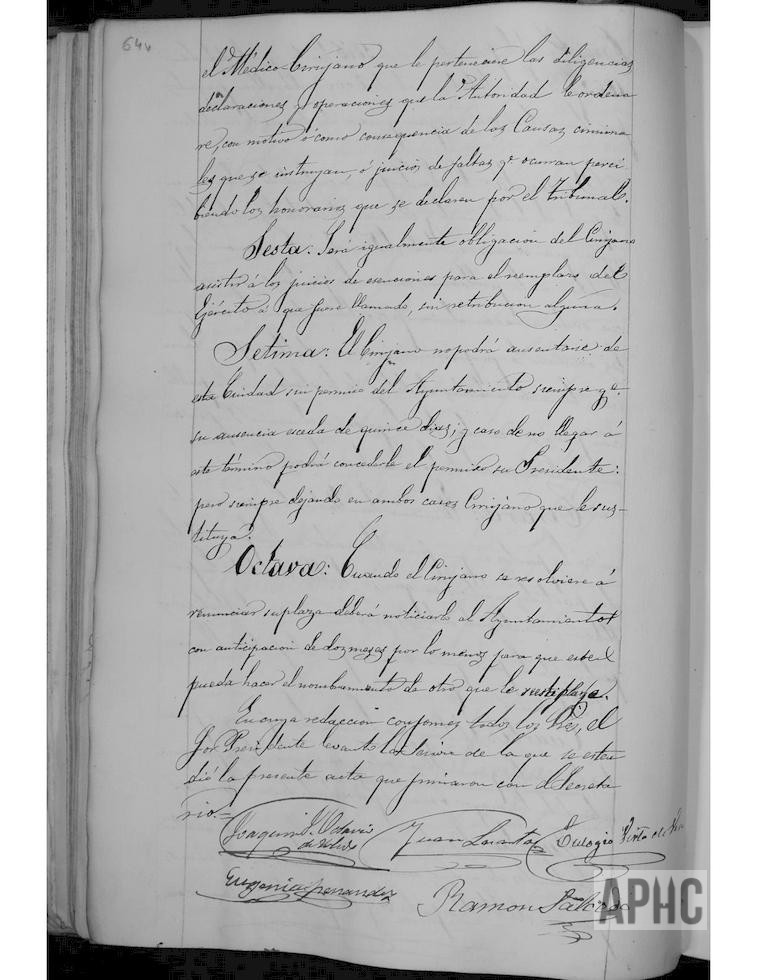 644
el Médico-Cirujano que le perteneciere las diligencias
declaraciones y operaciones que la Autoridad le ordena
re, con motivo ó como consequencia de las Causas crimina
les que se instruyan, ó juicios de faltas qe ocurran perci
biendo los honorarios que se declaren por el tribunal.
Sesta: Será igualmente obligacion del Cirujano
asistir á los juicios de esenciones para el reemplazo del
Ejército á que fuere llamado, sin retribucion alguna.
Setima: El Cirujano no podrá ausentarse de
esta Ciudad sin permiso del Ayuntamiento siempre qe
su ausencia esceda de quince dias; y caso de no llegar á
este término podrá concederle el permiso su Presidente:
pero siempre dejando en ambos casos Cirujano que le sus-
tituya.
Octava: Cuando el Cirujano se resolviere á
renunciar su plaza deberá noticiarlo al Ayuntamiento
con anticipacion de dos meses por lo menos para que este
pueda hacer el nombramiento de otro que le reemplaze.
En cuya redaccion conformes todos los Sres, el
Sor Presidente levantó la sesion de la que se esten
dió la presente acta que firmaron con el Secreta
rio.=
Joaquin J. Octavio
de Toledo
Juan
Eulogio
Eugenio Fernandez
Ramon
APHC